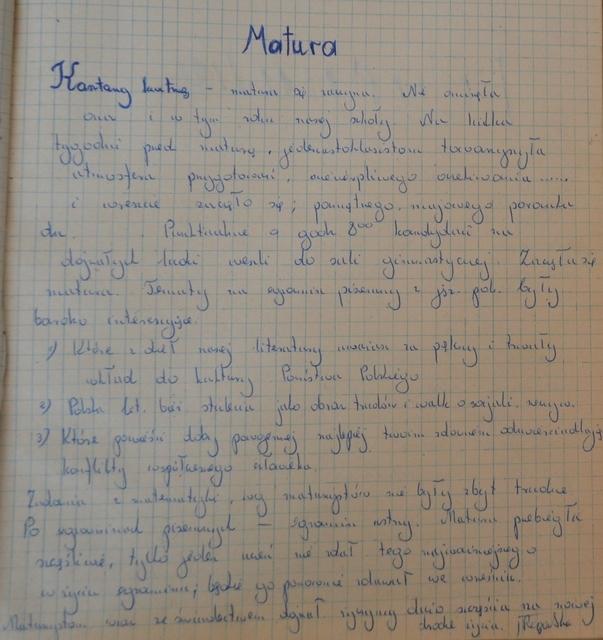 Matura
Kasztany kwitną – matura się zaczyna. Nie ominęła
ona i w tym roku naszej szkoły. Na kilka
tygodni przed maturą, jedenastoklasistom towarzyszyła
atmosfera przygotowań, niecierpliwego oczekiwania .....
i wreszcie zaczęło się; pamiętnego, majowego poranka
dn. Punktualnie o godz 8⁰⁰ kandydaci na
dojrzałych ludzi weszli do sali gimnastycznej. Zaczęła się
matura. Tematy na egzamin pisemny z jęz. pol. były
bardzo interesujące.
1) Które z dzieł naszej literatury uważasz za piękny i trwały
wkład do kultury Państwa Polskiego
2) Polska lit. jako obraz trudów i walk o
3) Które powieści doby powojennej najlepiej twoim zdaniem odzwierciedlają
konflikty współczesnego człowieka.
Zadania z matematyki, wg maturzystów nie były zbyt trudne
Po egzaminach pisemnych – egzamin ustny. Matura przebiegła
szczęśliwie, tylko jeden uczeń nie zdał tego najważniejszego
w życiu egzaminu; będzie go ponownie zdawał we wrześniu.
Maturzystom wraz ze świadectwem dojrzał. życzymy dużo szczęścia na nowej
drodze życia.